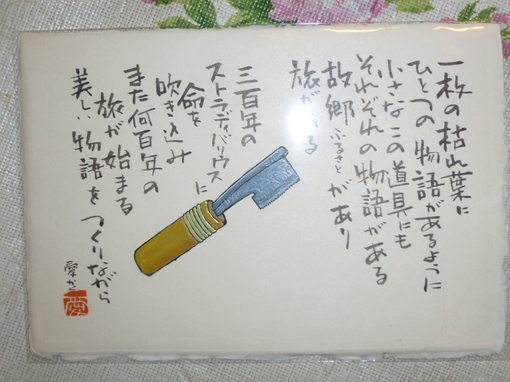 一枚の枯れ葉に
ひとつの物語があるように
小さなこの道具にも
それぞれの物語がある
故郷ふるさとがあり
旅がある
三百年の
ストラディバリウスに
命を
吹き込み
また何百年の
旅が始まる
美しい物語をつくりながら